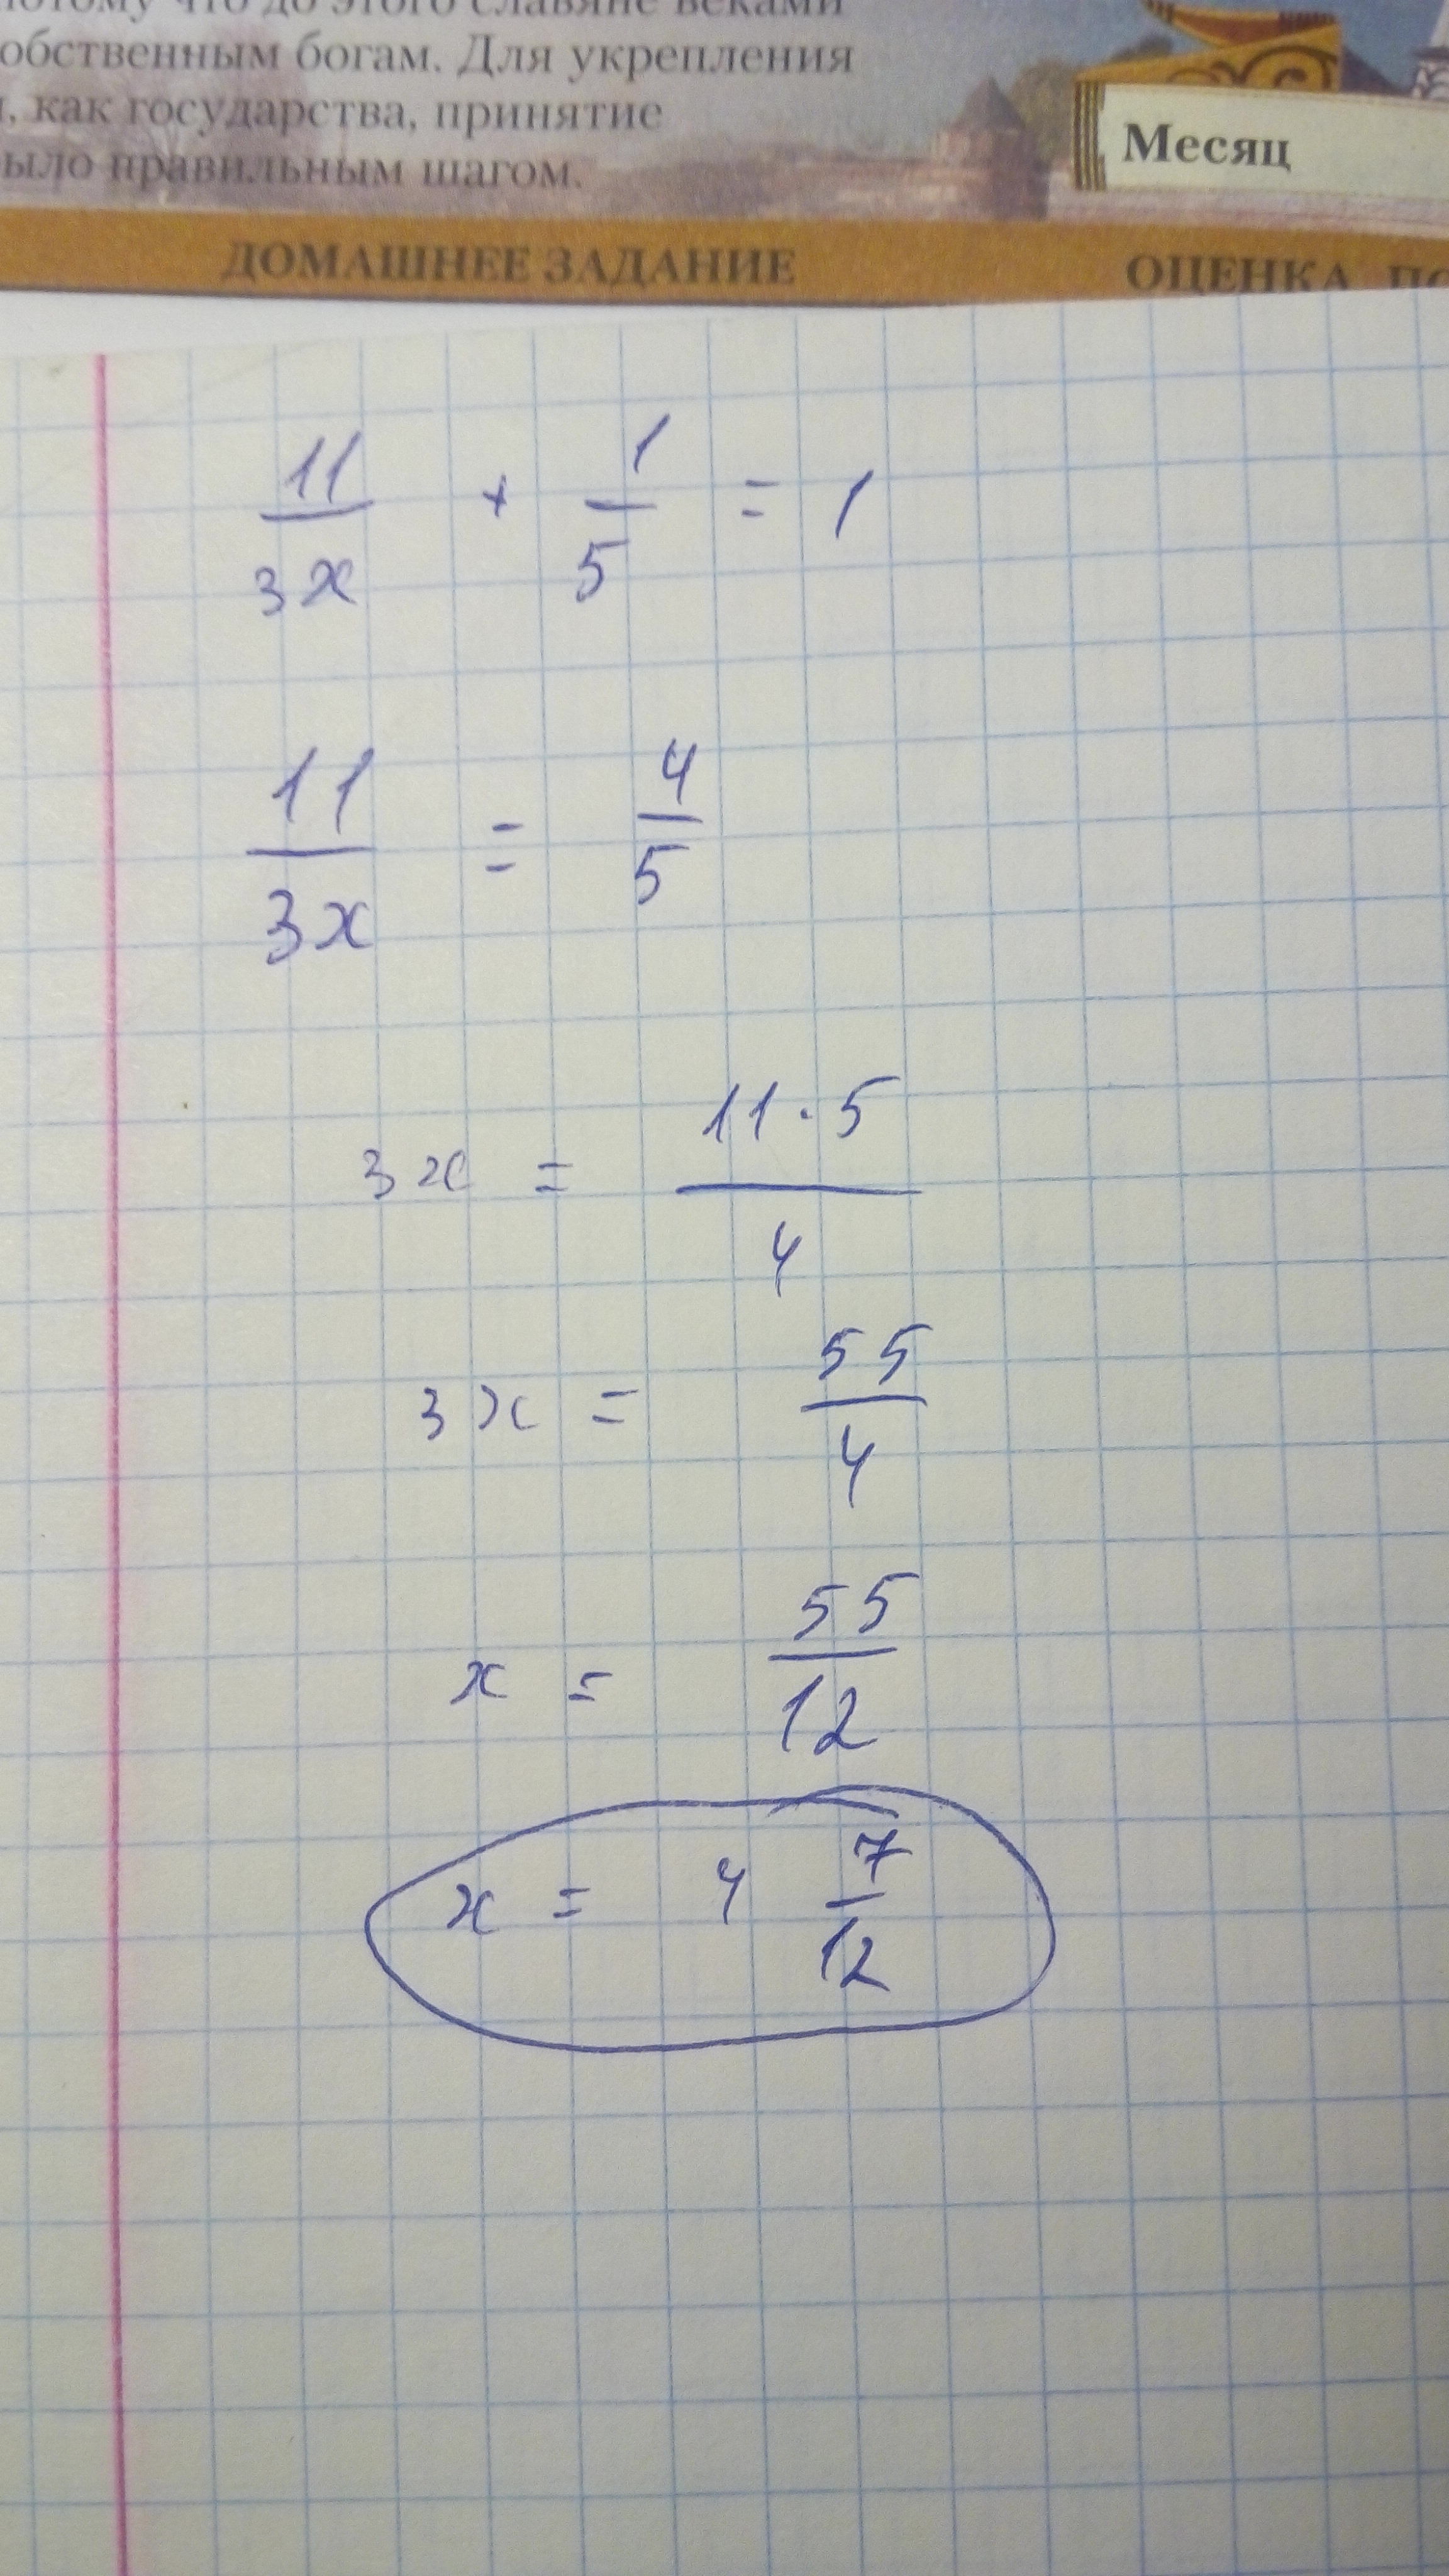 потому что до этого славяне веками
обственным богам. Для укрепления
, как государства, принятие
ыло правильным шагом.
Месяц
ДОМАШНЕЕ ЗАДАНИЕ
ОЦЕНКА ПО
11/3x + 1/5 = 1
11/3x = 4/5
3x = 11·5/4
3x = 55/4
x = 55/12
x = 4 7/12